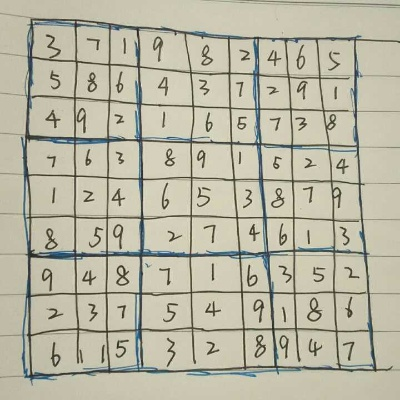 3 7 1 9 8 2 4 6 5
5 8 6 4 3 7 2 9 1
4 9 2 1 6 5 7 3 8
7 6 3 8 9 1 5 2 4
1 2 4 6 5 3 8 7 9
8 5 9 2 7 4 6 1 3
9 4 8 7 1 6 3 5 2
2 3 7 5 4 9 1 8 6
6 1 5 3 2 8 9 4 7